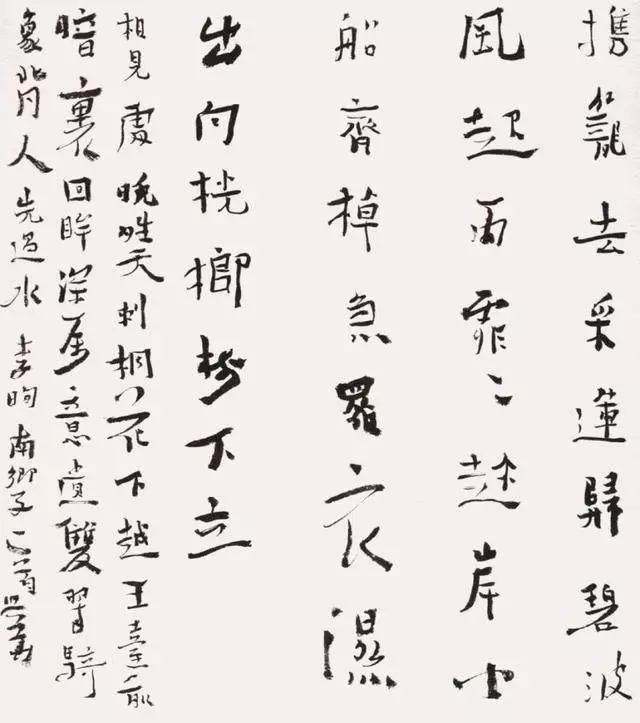 攜籠去采蓮歸碧波
風起雨霏〻趂岸小
船齊棹急羅衣濕
出向桄榔樹下立
相見處晚晴天刺桐花下越王臺前
暗裏回眸深屬意遺雙翠騎
象背人先過水李珣南鄉子二首